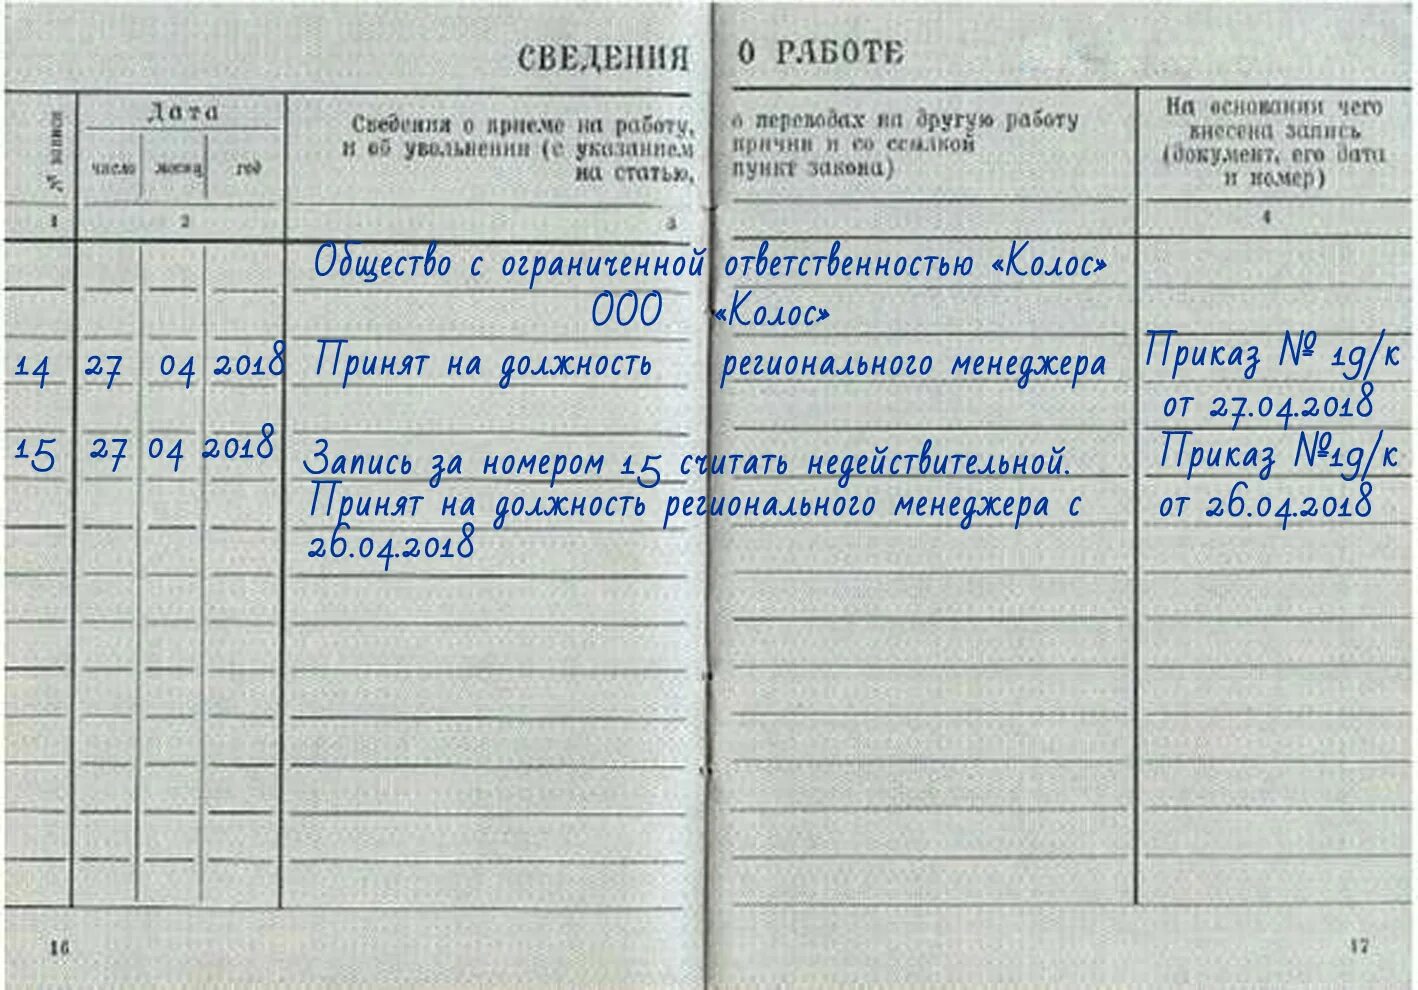 СВЕДЕНИЯ О РАБОТЕ
№ записи
Дата
число месяц год
Сведения о приеме на работу, о переводах на другую работу
и об увольнении (с указанием причин и со ссылкой
на статью, пункт закона)
На основании чего
внесена запись
(документ, его дата
и номер)
1 2 3 4
Общество с ограниченной ответственностью «Колос»
ООО «Колос»
14 27 04 2018 Принят на должность регионального менеджера Приказ № 19/к
от 27.04.2018
15 27 04 2018 Запись за номером 15 считать недействительной. Приказ №19/к
Принят на должность регионального менеджера с от 26.04.2018
26.04.2018
16 17